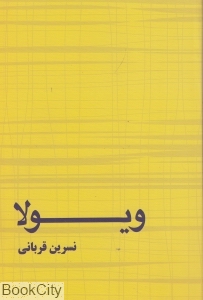 ویولا
نسرین قربانی
BookCity